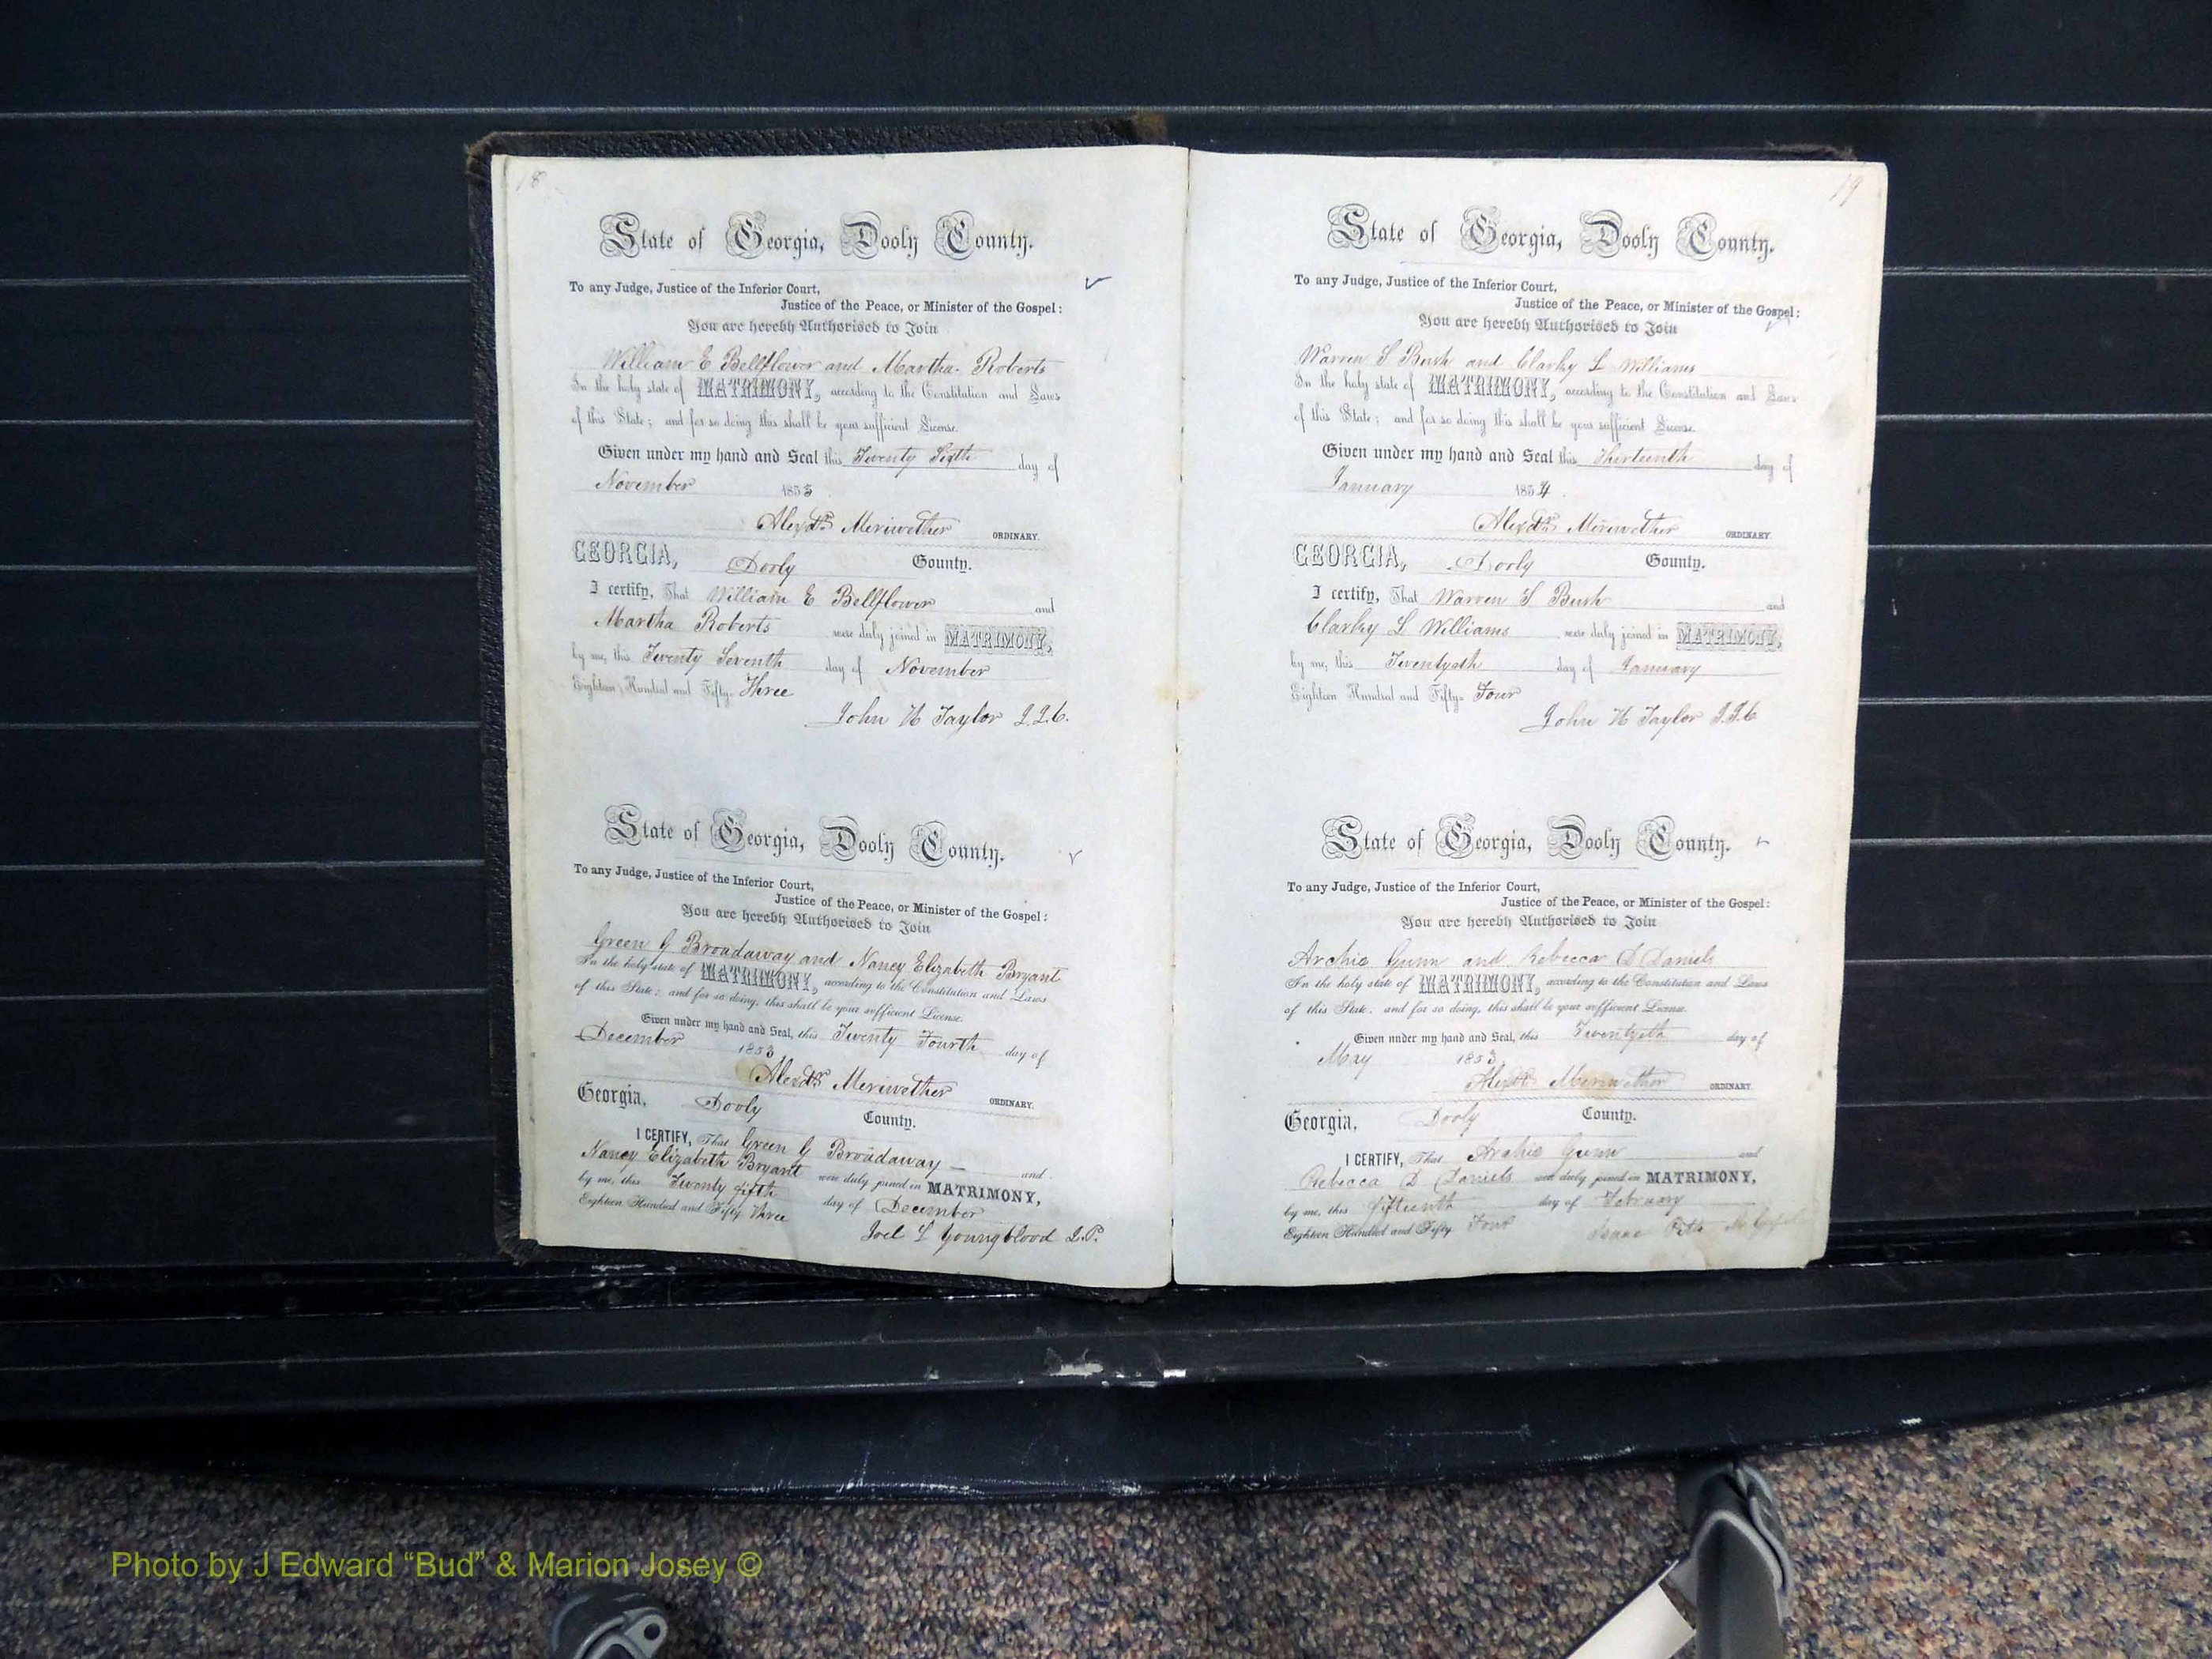 18
State of Georgia, Dooly County.
To any Judge, Justice of the Inferior Court,
Justice of the Peace, or Minister of the Gospel:
You are hereby Authorised to Join
William E Bellflower and Martha Roberts
In the holy state of MATRIMONY, according to the Constitution and Laws
of this State; and for so doing this shall be your sufficient License.
Given under my hand and Seal this Twenty Sixth day of
November 1853
Alexdr Meriwether ORDINARY.
GEORGIA, Dooly County.
I certify, That William E Bellflower and
Martha Roberts were duly joined in MATRIMONY,
by me, this Twenty Seventh day of November
Eighteen Hundred and Fifty- Three
John H Taylor J.I.C.
State of Georgia, Dooly County.
To any Judge, Justice of the Inferior Court,
Justice of the Peace, or Minister of the Gospel:
You are hereby Authorised to Join
Green G Broadaway and Nancy Elizabeth Bryant
In the holy state of MATRIMONY, according to the Constitution and Laws
of this State: and for so doing, this shall be your sufficient License.
Given under my hand and Seal, this Twenty Fourth day of
December 1853
Alexdr Meriwether ORDINARY.
Georgia, Dooly County.
I CERTIFY, That Green G Broadaway — and
Nancy Elizabeth Bryant were duly joined in MATRIMONY,
by me, this Twenty fifth day of December
Eighteen Hundred and Fifty Three
Joel T Youngblood J.P.
19
State of Georgia, Dooly County.
To any Judge, Justice of the Inferior Court,
Justice of the Peace, or Minister of the Gospel:
You are hereby Authorised to Join
Warren S Bush and Clarky L Williams
In the holy state of MATRIMONY, according to the Constitution and Laws
of this State; and for so doing this shall be your sufficient License.
Given under my hand and Seal this Thirteenth day of
January 1854
Alexdr Meriwether ORDINARY.
GEORGIA, Dooly County.
I certify, That Warren S Bush and
Clarky L Williams were duly joined in MATRIMONY,
by me, this Twentyeth day of January
Eighteen Hundred and Fifty- Four
John H Taylor J.I.C
State of Georgia, Dooly County.
To any Judge, Justice of the Inferior Court,
Justice of the Peace, or Minister of the Gospel:
You are hereby Authorised to Join
Archie Gunn and Rebecca D Daniels
In the holy state of MATRIMONY, according to the Constitution and Laws
of this State. and for so doing, this shall be your sufficient License.
Given under my hand and Seal, this Twentyeth day of
May 1853
Alexdr Meriwether ORDINARY.
Georgia, Dooly County.
I CERTIFY, That Archie Gunn and
Rebecca D Daniels were duly joined in MATRIMONY,
by me, this fifteenth day of February
Eighteen Hundred and Fifty Four
Photo by J Edward “Bud” & Marion Josey ©